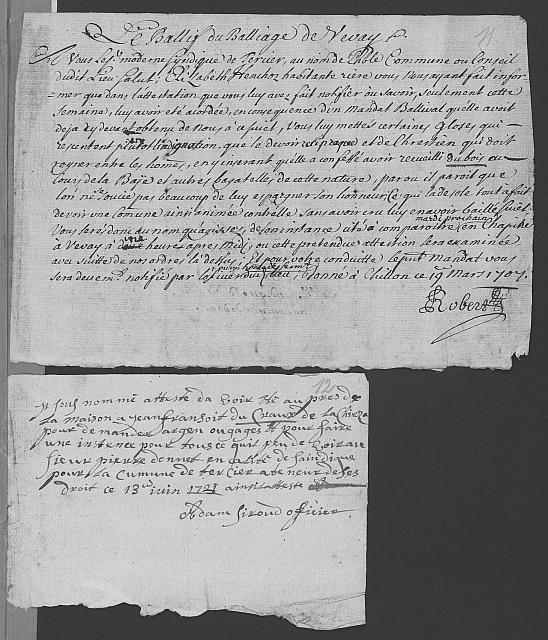 Le Ballif du Balliage de Vevay
11
A Vous le Sr moderne Syndique de Tercier, au nom de l'hble Commune ou Conseil
dudit Lieu Salut; Elisabeth habitante rière vous, Nous ayant fait infor=
=mer que dans l'attestation que vous luy avez fait notifier ou Savoir, seulement cette
Semaine, luy avoir été acordée, en consequence d'un mandat Ballival qu'elle avoit
deja cy devent obtenu de nous à ce sujet, Vous luy mettes certaines Gloses qui
resentent plutot l'indignation, que le devoir et de Chrestien qui doit
regner entre les homes, en y inserant qu'elle a confessé avoir recueilli du bois au
tour de la Baÿe et autres bagatelles de cette nature, par ou il paroit que
l'on ne soucie pas beaucoup de luy espargner son honneur, Ce qui la desole tout à fait
de voir une Comune ainsi animée contr'elle Sans avoir cru luy en avoir baillé sujet
mardi prochain
Vous serés donc au nom que agissés, de son instance cité à comparoitre en Chapitre
à Vevay à une heures apres Midi, ou cette pretendue attestion sera examinée
avec suitte de nos ordres là dessus, Et pour votre conduitte le pnt Mandat vous
sera deuemt notifié par l'officier du Lieu, Donné à Chillon ce 19 Mars 1707.
Robert
12
Je sous nommé atteste da voir été au pres de
la maison a Jean fransoit du Craux de la
pour demander argen ou gages et pour faire
une instence pour tous ce quit peu de voir au
sieur pierre donnet en calité de saindique
pour la Cumune de tercier a teneur de ses
droit ce 13me juin 1721 ainsi atteste
Adam Giroud officier